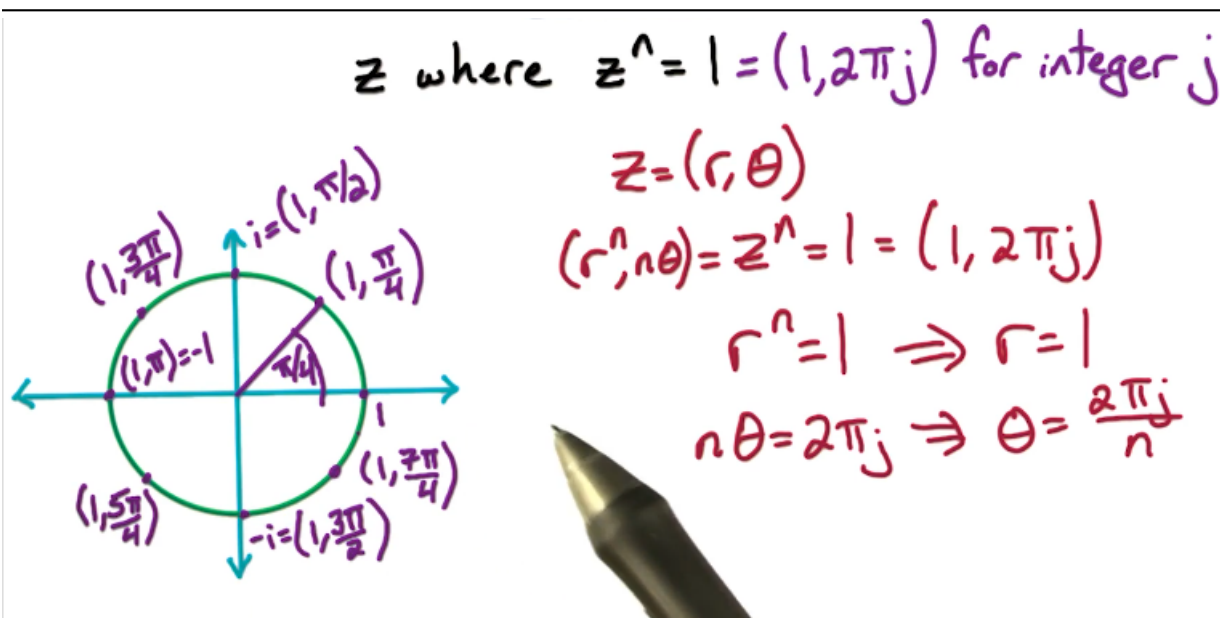 z where zⁿ = 1 = (1, 2πj) for integer j
z = (r, θ)
(rⁿ, nθ) = zⁿ = 1 = (1, 2πj)
rⁿ = 1 ⇒ r = 1
nθ = 2πj ⇒ θ = 2πj/n
i = (1, π/2)
(1, 3π/4)
(1, π/4)
(1, π) = -1
π/4
1
(1, 7π/4)
(1, 5π/4)
-i = (1, 3π/2)